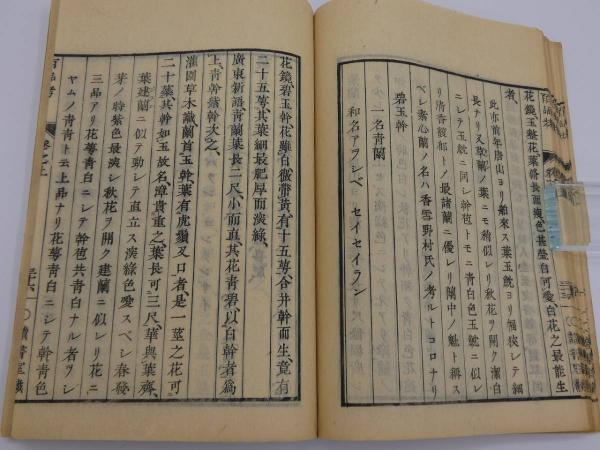 花鏡玉整花葉脩長而瘦色甚瑩白可愛白花之最能生
者
此亦前年唐山ヨリ舶來ス葉玉魫ヨリ福狹シテ細
長ナリ又草蘭ノ葉ニモ稍似レリ秋花ヲ開ク潔白
ニシテ玉魫ニ同シ幹苞トモニ青白色玉魫ニ似レ
リ清香馥郁トシ最諸蘭ニ優レリ蘭中ノ魁ト稱ス
ベシ素心蘭ノ名ハ香雪野村氏ノ考ルトコロナリ
碧玉幹
一名青蘭
和名アヲシベ セイセイラン
花鏡碧玉幹花雖白微帶黃有十五萼合并幹而生竟有
二十五萼其葉細最肥厚而淡綠
廣東新語青蘭葉長二尺小而直其花青碧以白幹者為
上青幹紫幹次之
灌園草木識蘭首玉幹葉有虎鬚叉口者是一莖之花可
二十萼其幹如玉故名漳貴重之葉長可三尺華與葉齊
葉建蘭ニ似テ勁シテ直立ス淡綠色愛スベシ春發
芽ノ特紫色最淡シ秋花ヲ開ク建蘭ニ似レリ花ニ
三品アリ花萼青白ニシテ幹苞共青白ナル者ヲシ
ヤムノ青青ト云上品ナリ花萼青白ニシテ幹青色
百品考 卷之上 三十六 讀書室藏